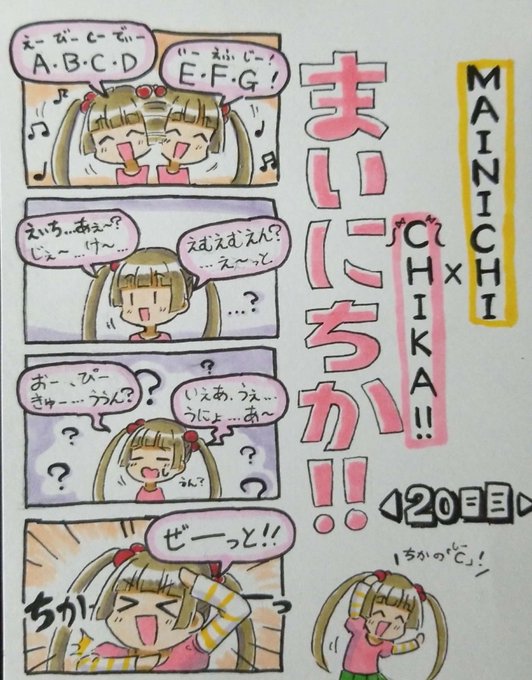 MAINICHI
×
CHIKA!!
まいにちか!!
20日目
えー びー しー でぃー
A・B・C・D
いー えふ じー!
E・F・G!
えいち…あぇ〜?
じぇ〜…け〜…
えむえむえん?
…え〜っと
…?
おー、ぴー
きゅー…ううん?
いぇあ、うぇ…
うにょ…あ〜
うん?
ぜーっと!!
ちかーっ
ちかの「C」!
しー